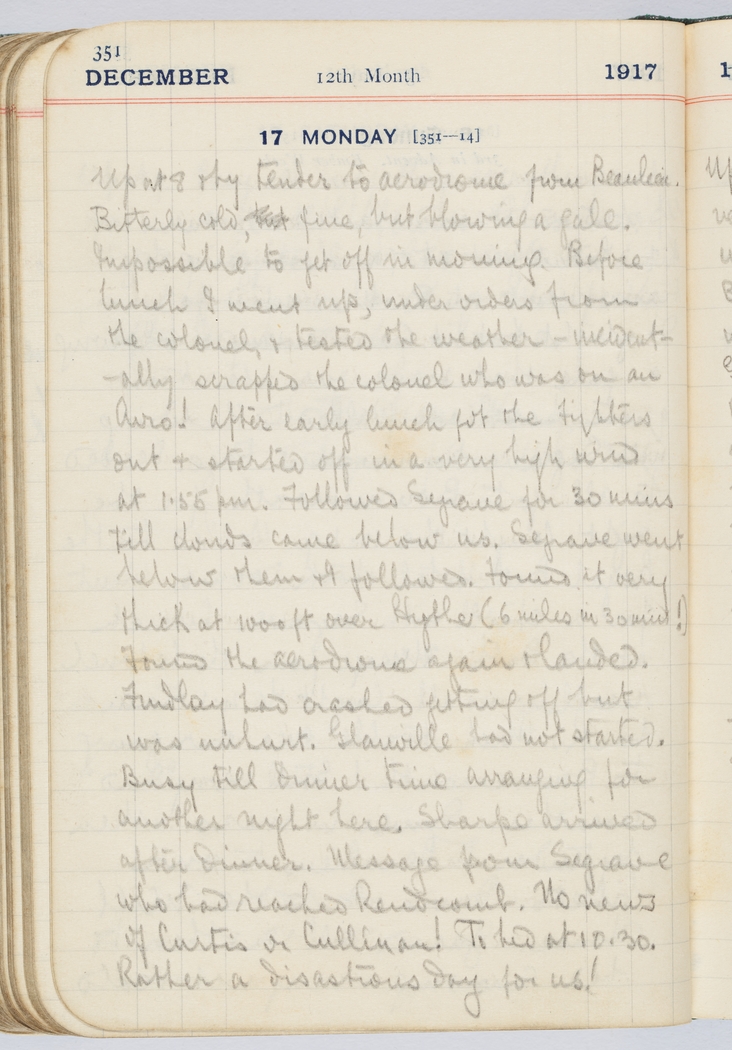 351
DECEMBER 12th Month 1917
17 MONDAY [351—14]
Up at 8 & by tender to aerodrome from Beaulieu.
Bitterly cold, but fine, but blowing a gale.
Impossible to get off in morning. Before
lunch I went up, under orders from
the colonel, & tested the weather – incident-
-ally scrapped the colonel who was on an
Avro! After early lunch got the fighters
out & started off in a very high wind
at 1.55 pm. Followed Segrave for 30 mins
till clouds came below us. Segrave went
below them & I followed. Found it very
thick at 1000 ft over Hythe (6 miles in 30 mins!)
Found the aerodrome again & landed.
Findlay had crashed getting off but
was unhurt. Glanville had not started.
Busy till dinner time arranging for
another night here. Sharpe arrived
after dinner. Message from Segrave
who had reached Rendcomb. No news
of Curtis or Cullinan! To bed at 10.30.
Rather a disastrous day for us!
1
Up